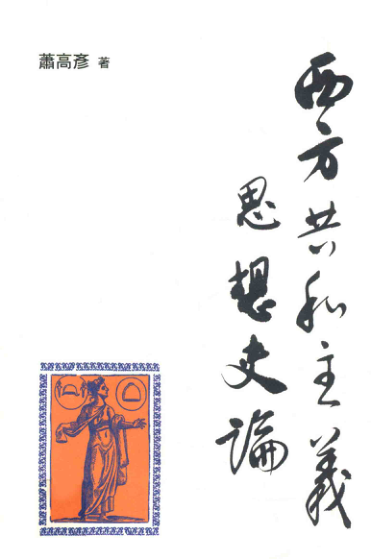 蕭高彥 著
西方共和主義
思想史論